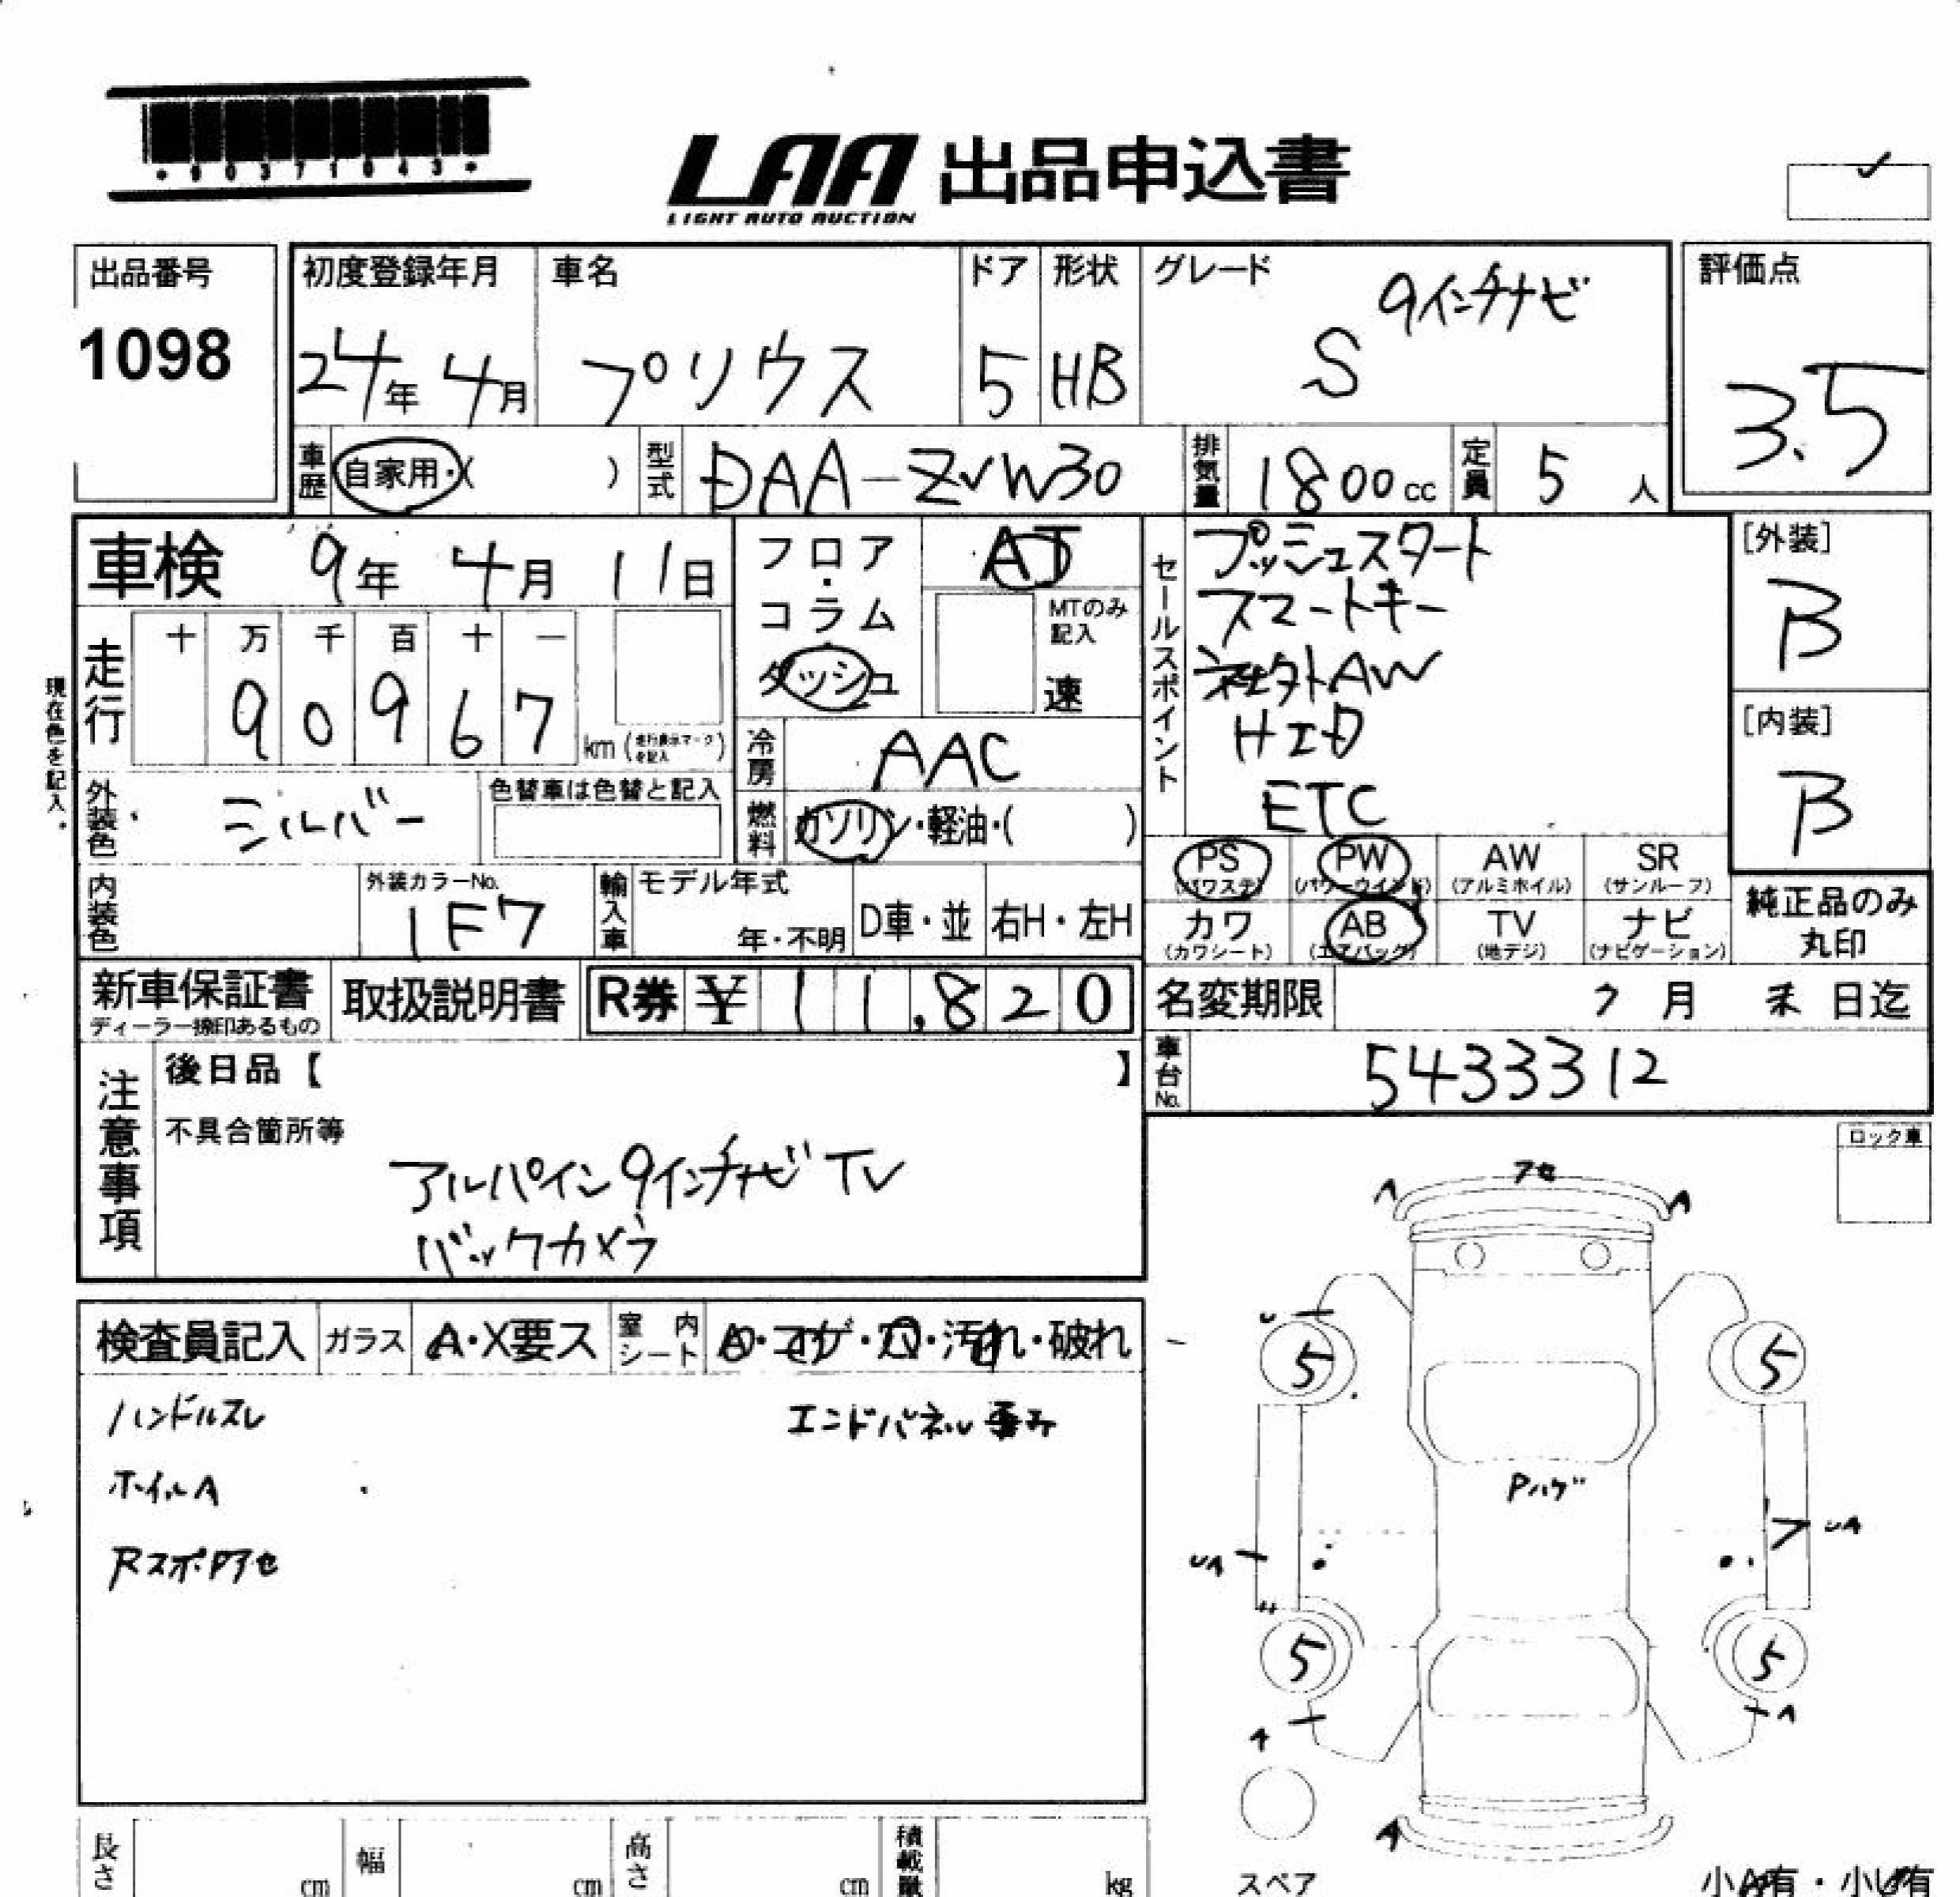 LAA 出品申込書
LIGHT AUTO AUCTION
出品番号
1098
初度登録年月
24年 4月
車名
プリウス
ドア
5
形状
HB
グレード
S 9インチナビ
評価点
3.5
車歴 自家用・( )
型式 DAA-ZVW30
排気量 1800cc
定員 5人
車検 9年 4月 11日
フロア・コラム・ダッシュ
AT
MTのみ記入
速
セールスポイント
プッシュスタート
スマートキー
社外AW
HID
ETC
[外装]
B
[内装]
B
現在色を記入。
走行
十 万 千 百 十 一
9 0 9 6 7 km (走行表示マークを記入)
冷房 AAC
外装色 シルバー
色替車は色替と記入
燃料 ガソリン・軽油・( )
PS (パワステ)
PW (パワーウインド)
AW (アルミホイル)
SR (サンルーフ)
カワ (カワシート)
AB (エアバッグ)
TV (地デジ)
ナビ (ナビゲーション)
純正品のみ丸印
内装色
外装カラーNo.
1F7
輸入車
モデル年式
年・不明
D車・並
右H・左H
新車保証書
ディーラー捺印あるもの
取扱説明書
R券 ¥11,820
名変期限 7月 末日迄
車台No. 5433312
注意事項
後日品【 】
不具合箇所等
アルパイン9インチナビ TV
バックカメラ
ロック車
検査員記入
ガラス A・X要ス
室内シート
コゲ・穴・汚れ・破れ
ハンドルスレ
エンドパネル歪み
ホイルA
アセ
A
A
5
5
Pハゲ
UA
UA
5
5
A
A
A
スペア
小A有・小U有
長さ cm
幅 cm
高さ cm
積載量 kg